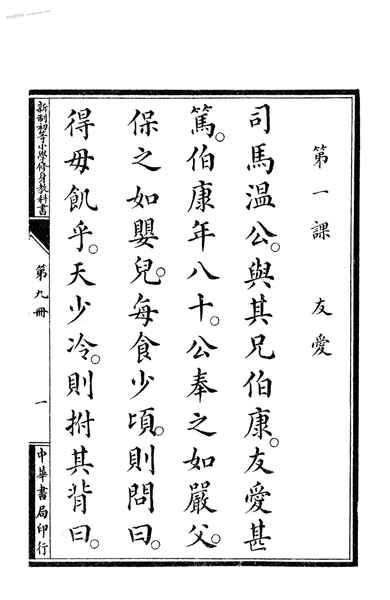 第一課　友愛
司馬温公。與其兄伯康。友愛甚
篤。伯康年八十。公奉之如嚴父。
保之如嬰兒。每食少頃。則問曰。
得毋飢乎。天少冷。則拊其背曰。
新制初等小學修身教科書
第九冊
一
中華書局印行